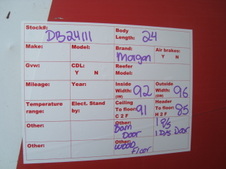 Stock#: DB24111 Body Length: 24
Make: Model: Brand: Morgan Air brakes: Y N
Gvw: CDL: Y N Reefer Model:
Mileage: Year: Inside Width: 92 Outside Width: 96
Temperature range: Elect. Stand by: Ceiling To floor: 91 Header To floor: 85
Other: Other: Other: Barn Door
Other: Other: Other: Wood Floor